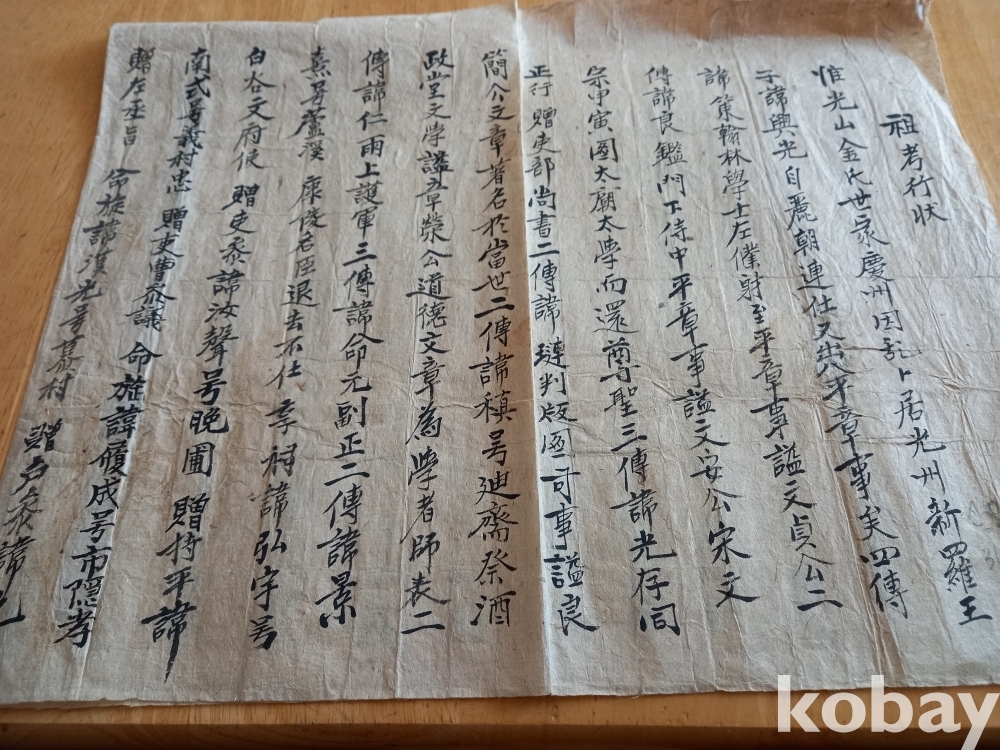 祖考行状
惟光山金氏世家慶州因乱卜居光州新羅王
子諱興光自麗朝連仕又代八平章事矣四傳
諱策翰林學士左僕射至平章事謚文貞公二
傳諱良鑑門下侍中平章事謚文安公宋文
宗甲寅圖太廟太學而還尊聖三傳諱光存同
正行贈吏部尚書二傳諱璉判版圖司事謚良
簡公文章著名於當世二傳諱稹号廸齋祭酒
政堂文學謚章榮公道德文章為學者師表二
傳諱仁雨上護軍三傳諱命元副正二傳諱景
熹号蘆溪康陵名臣退去不仕享祠諱弘宇号
白谷文府使贈吏參諱汝聲号晩圃贈持平諱
南式号義村忠贈吏曹參議命旌諱履成号市隱孝
贈左丞旨命旌諱漢光号慕村贈戶參諱
kobay